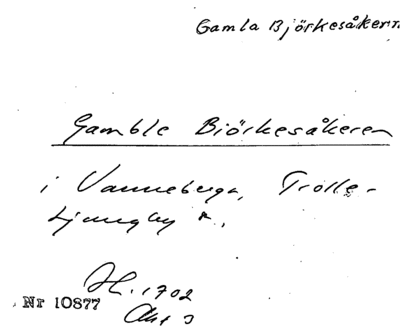 Gamla Björkesåkern
Gamble Biörkesåkeren
i Vanneberga, Trolle-
Ljungby
H. 1702
Akt 3
Nr 10877